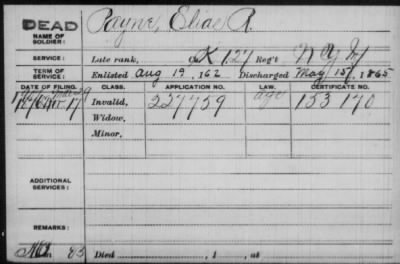 DEAD Payne, Elias R.
NAME OF SOLDIER:
SERVICE: Late rank, K 127 Reg't N.Y.
TERM OF SERVICE: Enlisted Aug 19, 162 Discharged May 15, 1865
DATE OF FILING. CLASS. APPLICATION NO. LAW. CERTIFICATE NO.
17 Invalid, 227759 153170
Widow,
Minor,
ADDITIONAL SERVICES:
REMARKS:
Died , 1 , at